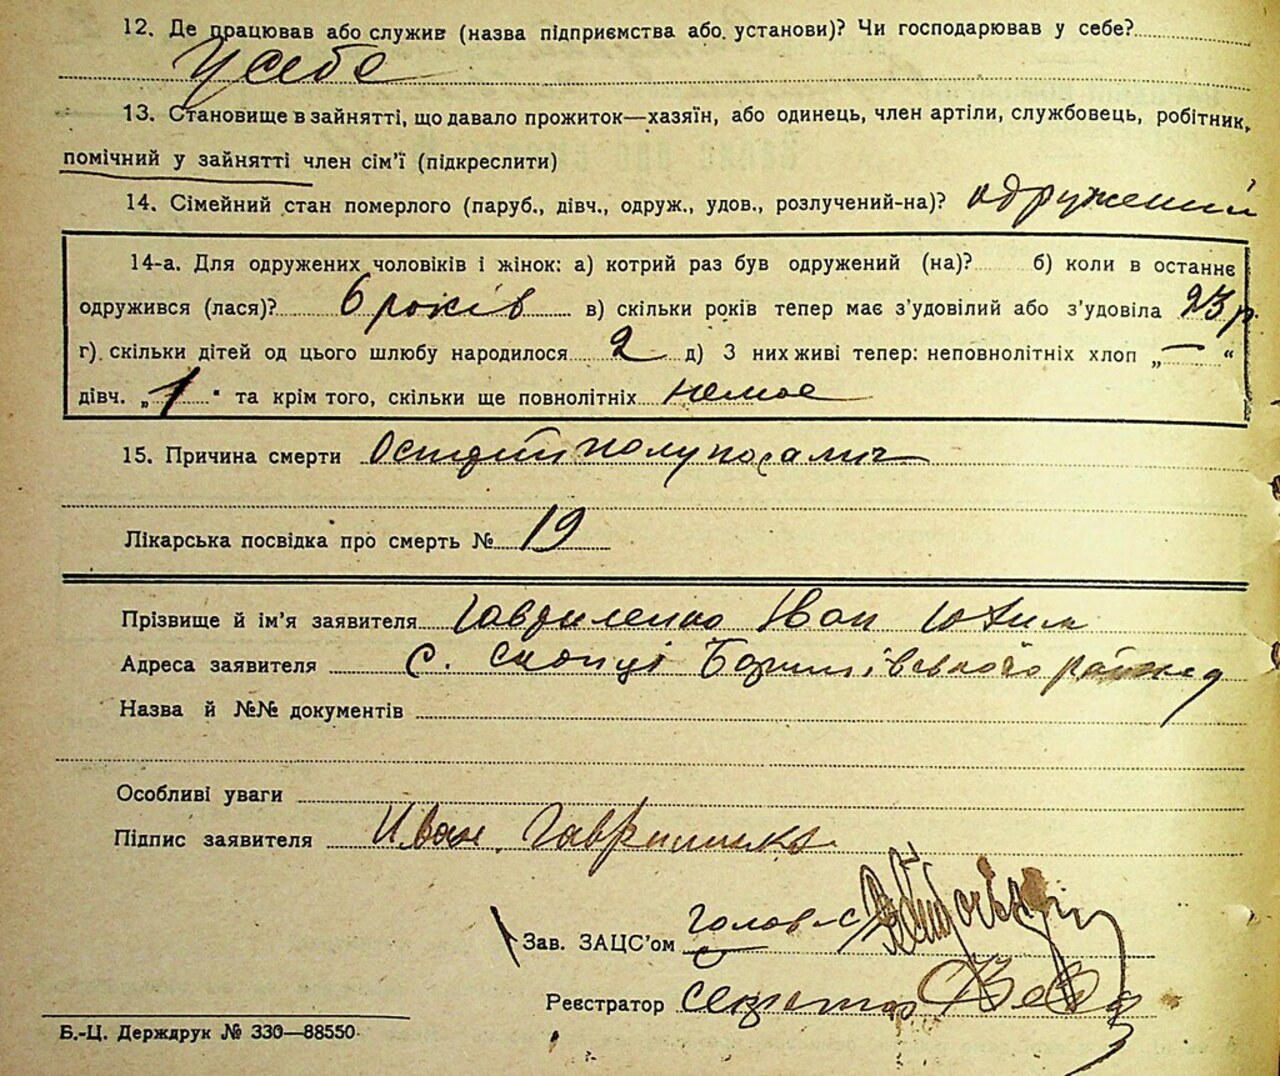 12. Де працював або служив (назва підприємства або установи)? Чи господарював у себе?
У себе
13. Становище в зайнятті, що давало прожиток—хазяїн, або одинець, член артіли, службовець, робітник,
помічний у зайнятті член сім'ї (підкреслити)
14. Сімейний стан померлого (паруб., дівч., одруж., удов., розлучений-на)? одружений
14-а. Для одружених чоловіків і жінок: а) котрий раз був одружений (на)? б) коли в останнє
одружився (лася)? 6 років в) скільки років тепер має з'удовілий або з'удовіла 23 р.
г) скільки дітей од цього шлюбу народилося 2 д) З них живі тепер: неповнолітніх хлоп „—“
дівч. „1“ та крім того, скільки ще повнолітніх немає
15. Причина смерти
Лікарська посвідка про смерть № 19
Прізвище й ім'я заявителя Гавриленко Іван
Адреса заявителя с. Скопці району
Назва й №№ документів
Особливі уваги
Підпис заявителя Иван Гавриленко
Зав. ЗАЦС'ом Голова с/р
Реєстратор Секретар
Б.-Ц. Держдрук № 330—88550